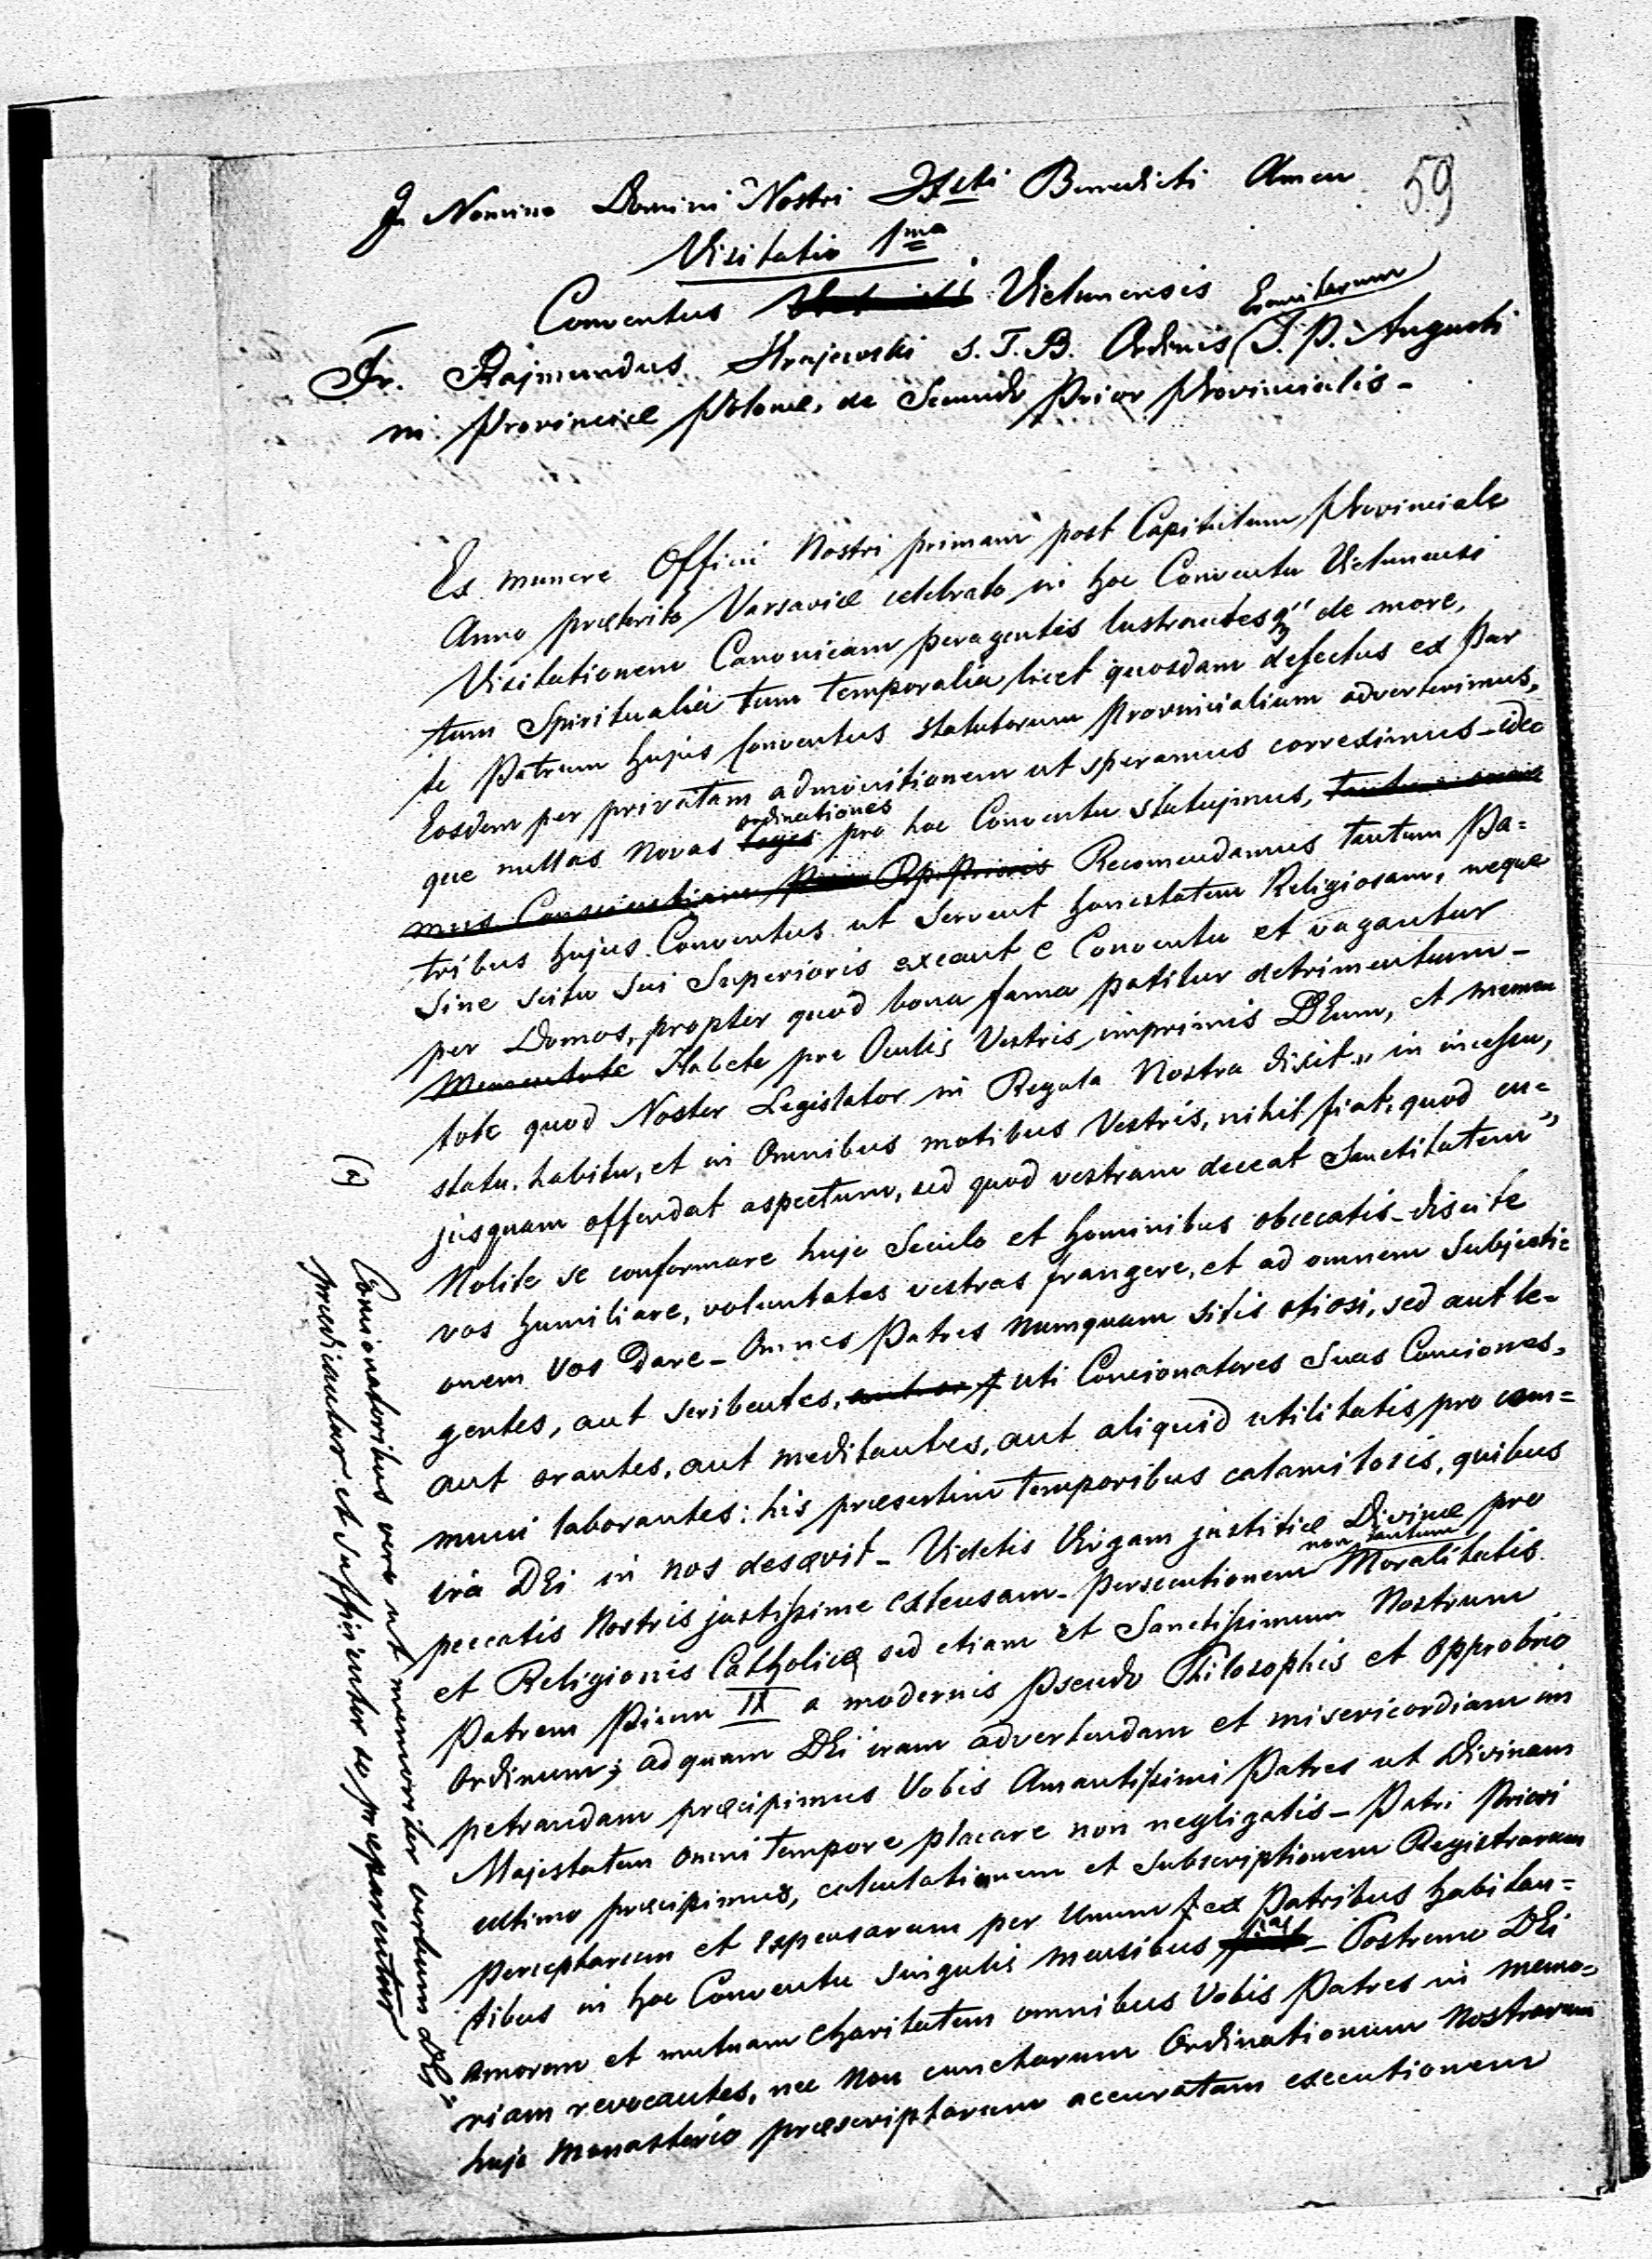 59
In Nomine Domini Nostri Jesu Christi Benedicti Amen
Visitatio 1ma
Conventus Vielunensis
Eremitarum
Fr. Rajmundus Krajewski S. T. B. Ordinis S. P. Augusti
ni Provinciæ Polonæ, de Secundo Prior Provincialis -
Ex munere Officii Nostri primam post Capitulum Provinciale
Anno præterito Varsaviæ celebrato in hoc Conventu Vielunensi
Visitationem Canonicam peragentes lustrantesq" de more,
tum Spiritualia tum temporalia licet quosdam defectus ex Par
te Patrum hujus Conventus statutorum Provincialium adverterimus,
Eosdem per privatam admonitionem ut speramus correximus - ideo
ordinationes
que nullas novas leges pro hoc Conventu statujmus, tantum one
mus Conscientiam Prio RP. Prioris Recomendamus tantum Pa=
tribus hujus Conventus ut servent honestatem Religiosam, neque
sine scitu sui Superioris exeant e Conventu et vagantur
per Domos, propter quod bona fama patitur detrimentum -
Mementote Habete pre Oculis Vestris imprimis DEum, et memen
tote quod Noster Legislator in Regula Nostra dixit „ in incessu,
statu, habitu, et in Omnibus motibus Vestris, nihil fiat, quod cu=
jusquam offendat aspectum, sed quod vestram deceat Sanctitatem"
Nolite se conformare hujc Seculo et hominibus obcecatis - discite
vos humiliare, voluntates vestras frangere, et ad omnem Subjecti=
onem vos Dare - Omnes Patres numquam sitis otiosi, sed aut le=
gentes, aut scribentes, uti Concionatores Suas Conciones,
aut orantes, aut meditantes, aut aliquid utilitatis pro com=
muni laborantes: his præsertim temporibus calamitosis, quibus
ira DEi in nos desævit - Videtis Virgam justitiæ Divinæ pro
non tantum
peccatis Nostris justissime extensam - persecutionem Moralitatis
et Religionis Catholicæ sed etiam et Sanctissimum Nostrum
Patrem Pium IX a modernis Pseudo Philosophis et opprobrio
Ordinum; ad quam DEi iram advertendam et misericordiam im
petrandam præcipimus Vobis Amantissimi Patres ut Divinam
Majestatem omni tempore placare non negligatis - Patri Priori
ultimo præcipimus, calculationem et subscriptionem Registrorum
perceptarum et expensarum per Unum ex Patribus habitan=
tibus in hoc Conventu singulis mensibus - Postremo DEi
amorem et mutuam charitatem omnibus Vobis Patres in memo=
riam revocantes, nec non cunctarum Ordinationum Nostrarum
hujc Monasterio præscriptarum accuratam executionem
(a)
Concionatoribus vero ut memoriter verbum DEi
prædicantur et sufficienter se præparentur